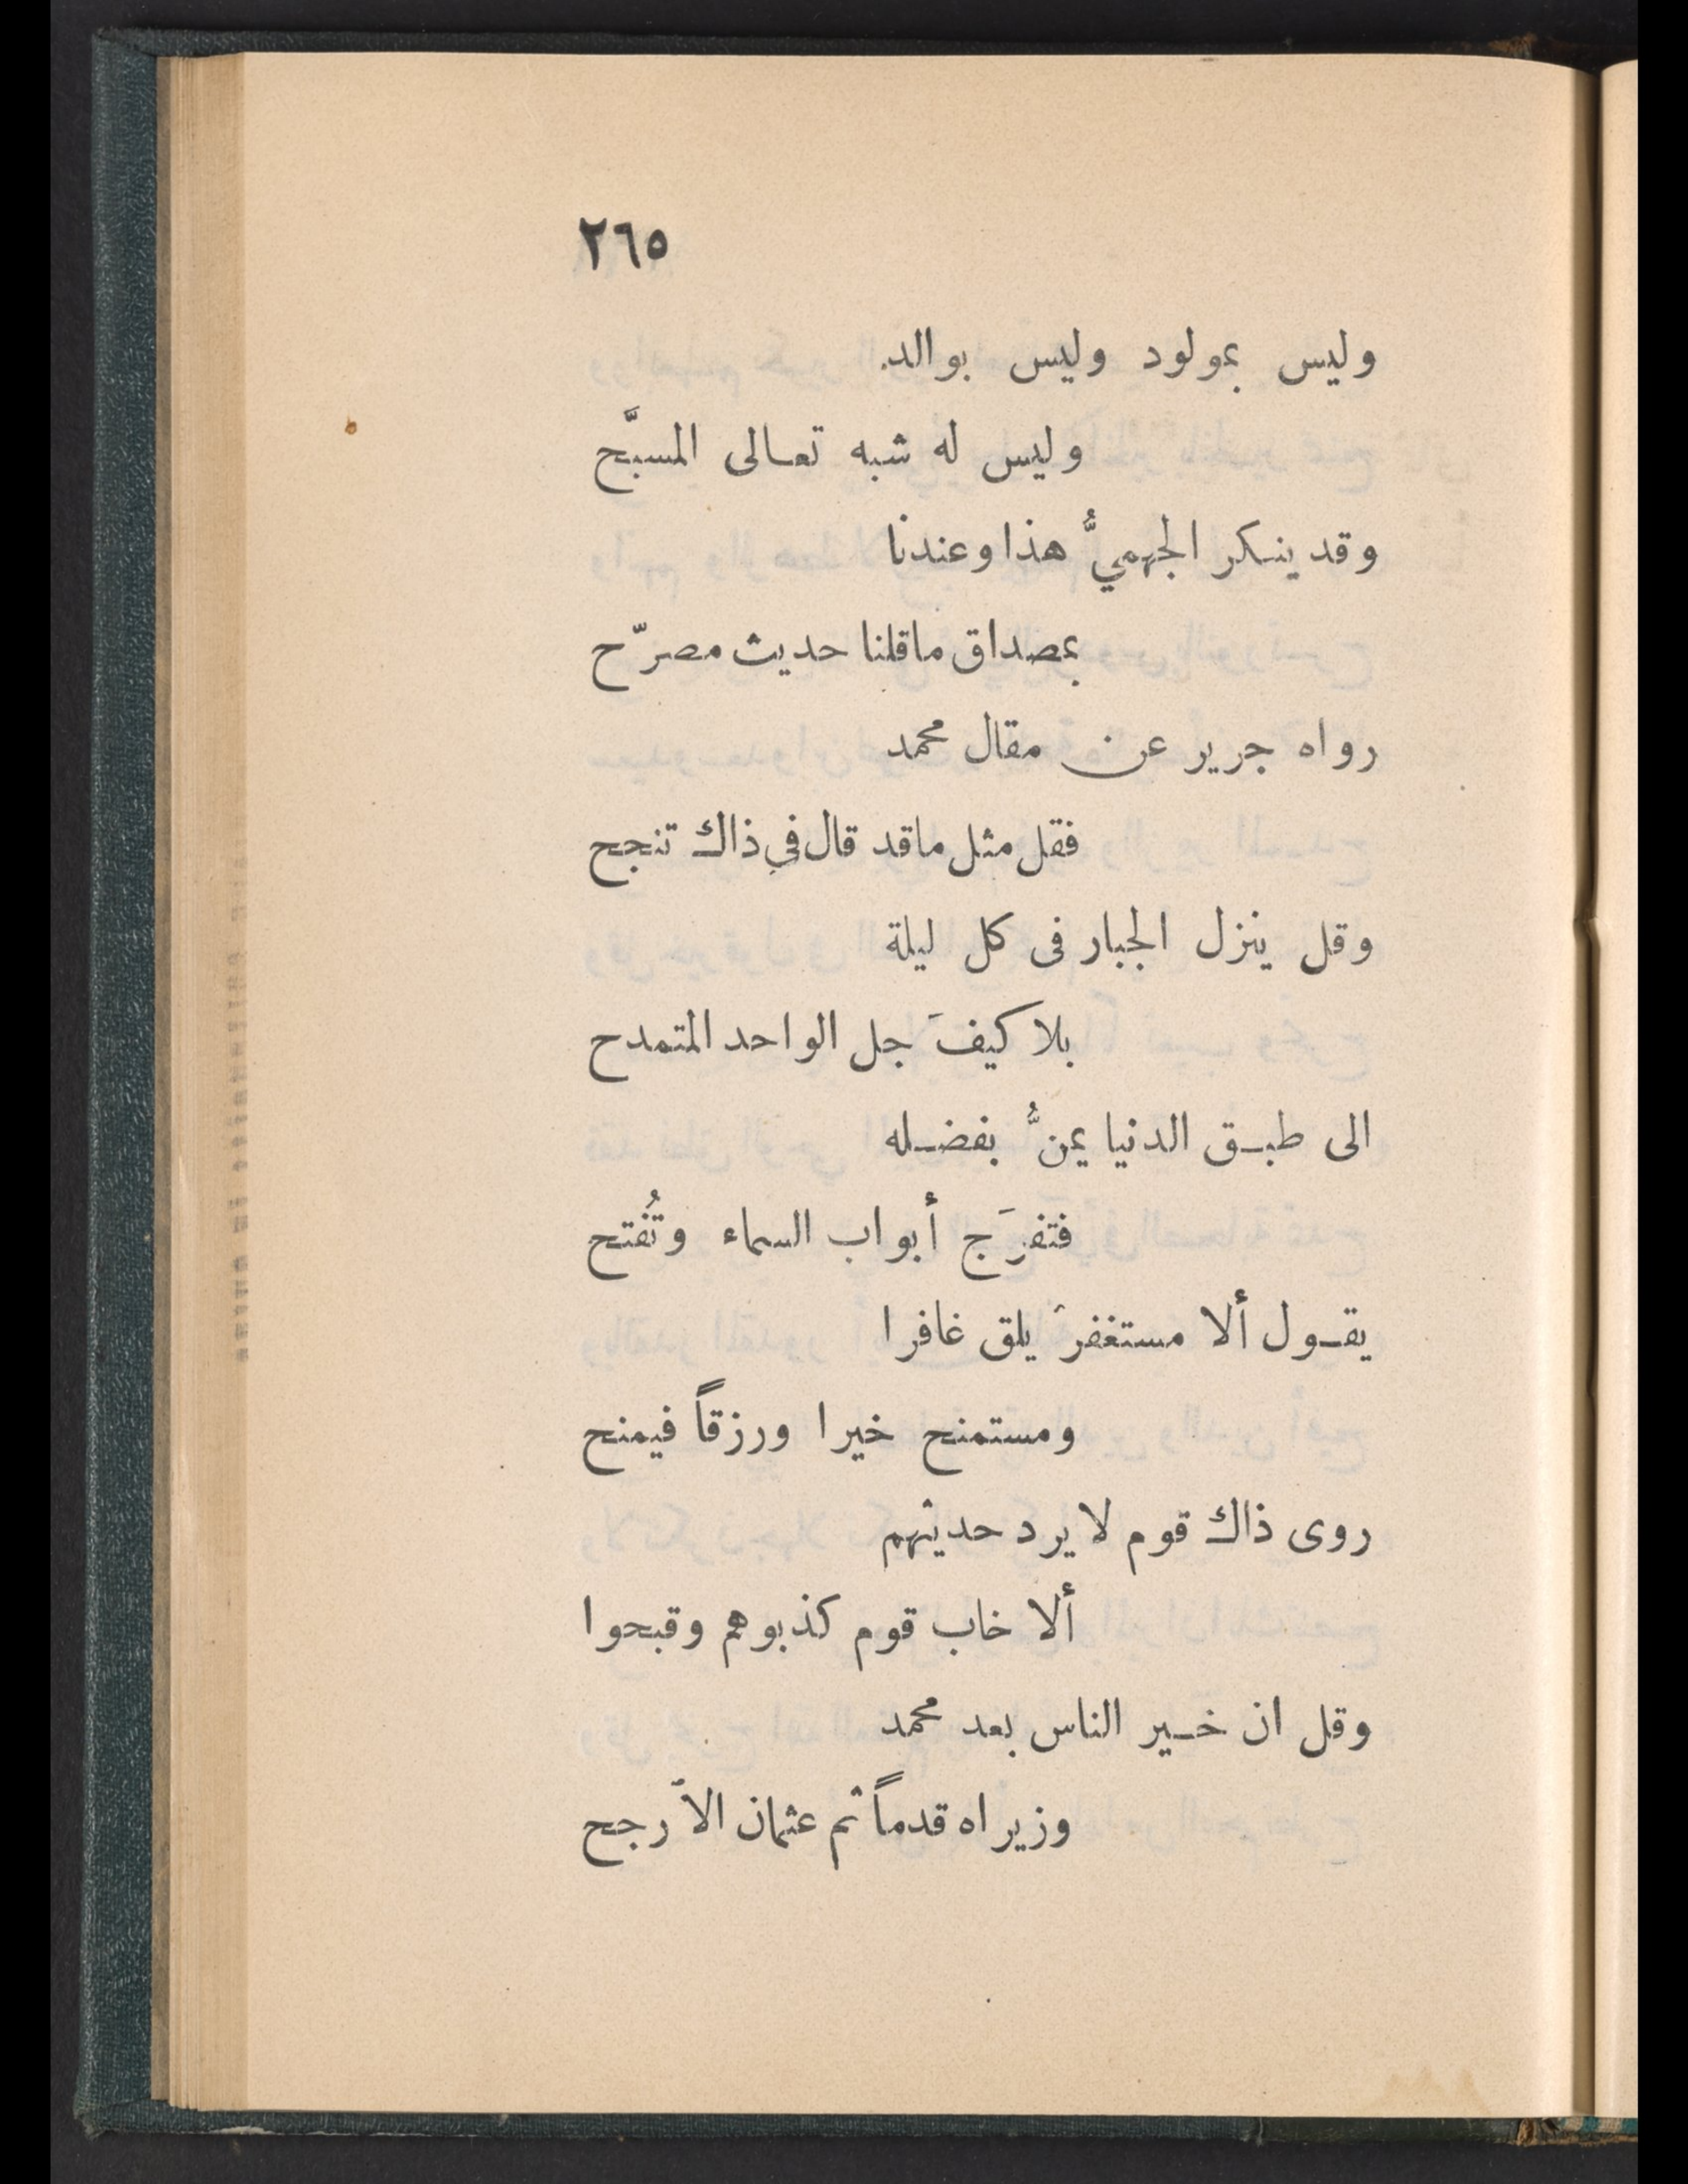 ٢٦٥
وليس بمولود وليس بوالد
وليس له شبه تعالى المسبَّح
وقد ينكر الجهميُّ هذا وعندنا
بمصداق ماقلنا حديث مصرّح
رواه جرير عن مقال محمد
فقل مثل ماقد قال في ذاك تنجح
وقل ينزل الجبار فى كل ليلة
بلا كيفَ جل الواحد المتمدح
الى طبق الدنيا يمنُّ بفضله
فتفرَج أبواب السماء وتُفتح
يقول ألا مستغفرَ يلق غافرا
ومستمنح خيرا ورزقاً فيمنح
روى ذاك قوم لا يرد حديثهم
ألا خاب قوم كذبوهم وقبحوا
وقل ان خير الناس بعد محمد
وزيراه قدماً ثم عثمان الأرجح